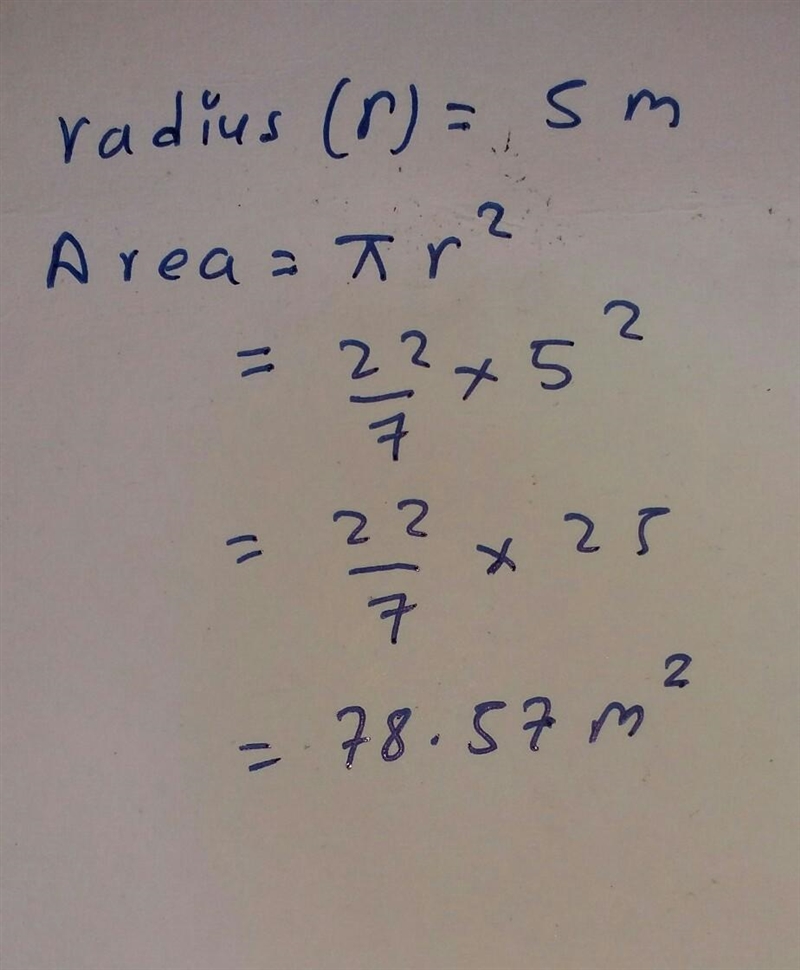 radius (r) = 5 m
Area = π r²
= 22/7 × 5²
= 22/7 × 25
= 78.57 m²